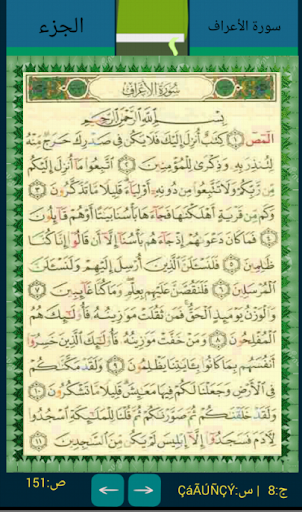 سورة الأعراف
الجزء
سُورَةُ الأَعْرَافِ
بِسْمِ ٱللَّهِ ٱلرَّحْمَٰنِ ٱلرَّحِيمِ
الٓمٓصٓ ١ كِتَٰبٌ أُنزِلَ إِلَيْكَ فَلَا يَكُن فِى صَدْرِكَ حَرَجٌ مِّنْهُ
لِتُنذِرَ بِهِۦ وَذِكْرَىٰ لِلْمُؤْمِنِينَ ٢ ٱتَّبِعُوا۟ مَآ أُنزِلَ إِلَيْكُم
مِّن رَّبِّكُمْ وَلَا تَتَّبِعُوا۟ مِن دُونِهِۦٓ أَوْلِيَآءَ قَلِيلًا مَّا تَذَكَّرُونَ ٣
وَكَم مِّن قَرْيَةٍ أَهْلَكْنَٰهَا فَجَآءَهَا بَأْسُنَا بَيَٰتًا أَوْ هُمْ قَآئِلُونَ
٤ فَمَا كَانَ دَعْوَىٰهُمْ إِذْ جَآءَهُم بَأْسُنَآ إِلَّآ أَن قَالُوٓا۟ إِنَّا كُنَّا
ظَٰلِمِينَ ٥ فَلَنَسْـَٔلَنَّ ٱلَّذِينَ أُرْسِلَ إِلَيْهِمْ وَلَنَسْـَٔلَنَّ
ٱلْمُرْسَلِينَ ٦ فَلَنَقُصَّنَّ عَلَيْهِم بِعِلْمٍ وَمَا كُنَّا غَآئِبِينَ ٧
وَٱلْوَزْنُ يَوْمَئِذٍ ٱلْحَقُّ فَمَن ثَقُلَتْ مَوَٰزِينُهُۥ فَأُو۟لَٰٓئِكَ هُمُ
ٱلْمُفْلِحُونَ ٨ وَمَنْ خَفَّتْ مَوَٰزِينُهُۥ فَأُو۟لَٰٓئِكَ ٱلَّذِينَ خَسِرُوٓا۟
أَنفُسَهُم بِمَا كَانُوا۟ بِـَٔايَٰتِنَا يَظْلِمُونَ ٩ وَلَقَدْ مَكَّنَّٰكُمْ
فِى ٱلْأَرْضِ وَجَعَلْنَا لَكُمْ فِيهَا مَعَٰيِشَ قَلِيلًا مَّا تَشْكُرُونَ ١٠
وَلَقَدْ خَلَقْنَٰكُمْ ثُمَّ صَوَّرْنَٰكُمْ ثُمَّ قُلْنَا لِلْمَلَٰٓئِكَةِ ٱسْجُدُوا۟
لِـَٔادَمَ فَسَجَدُوٓا۟ إِلَّآ إِبْلِيسَ لَمْ يَكُن مِّنَ ٱلسَّٰجِدِينَ ١١
ص:151
ج:8 | س:ÇáÃÚÑÇÝ